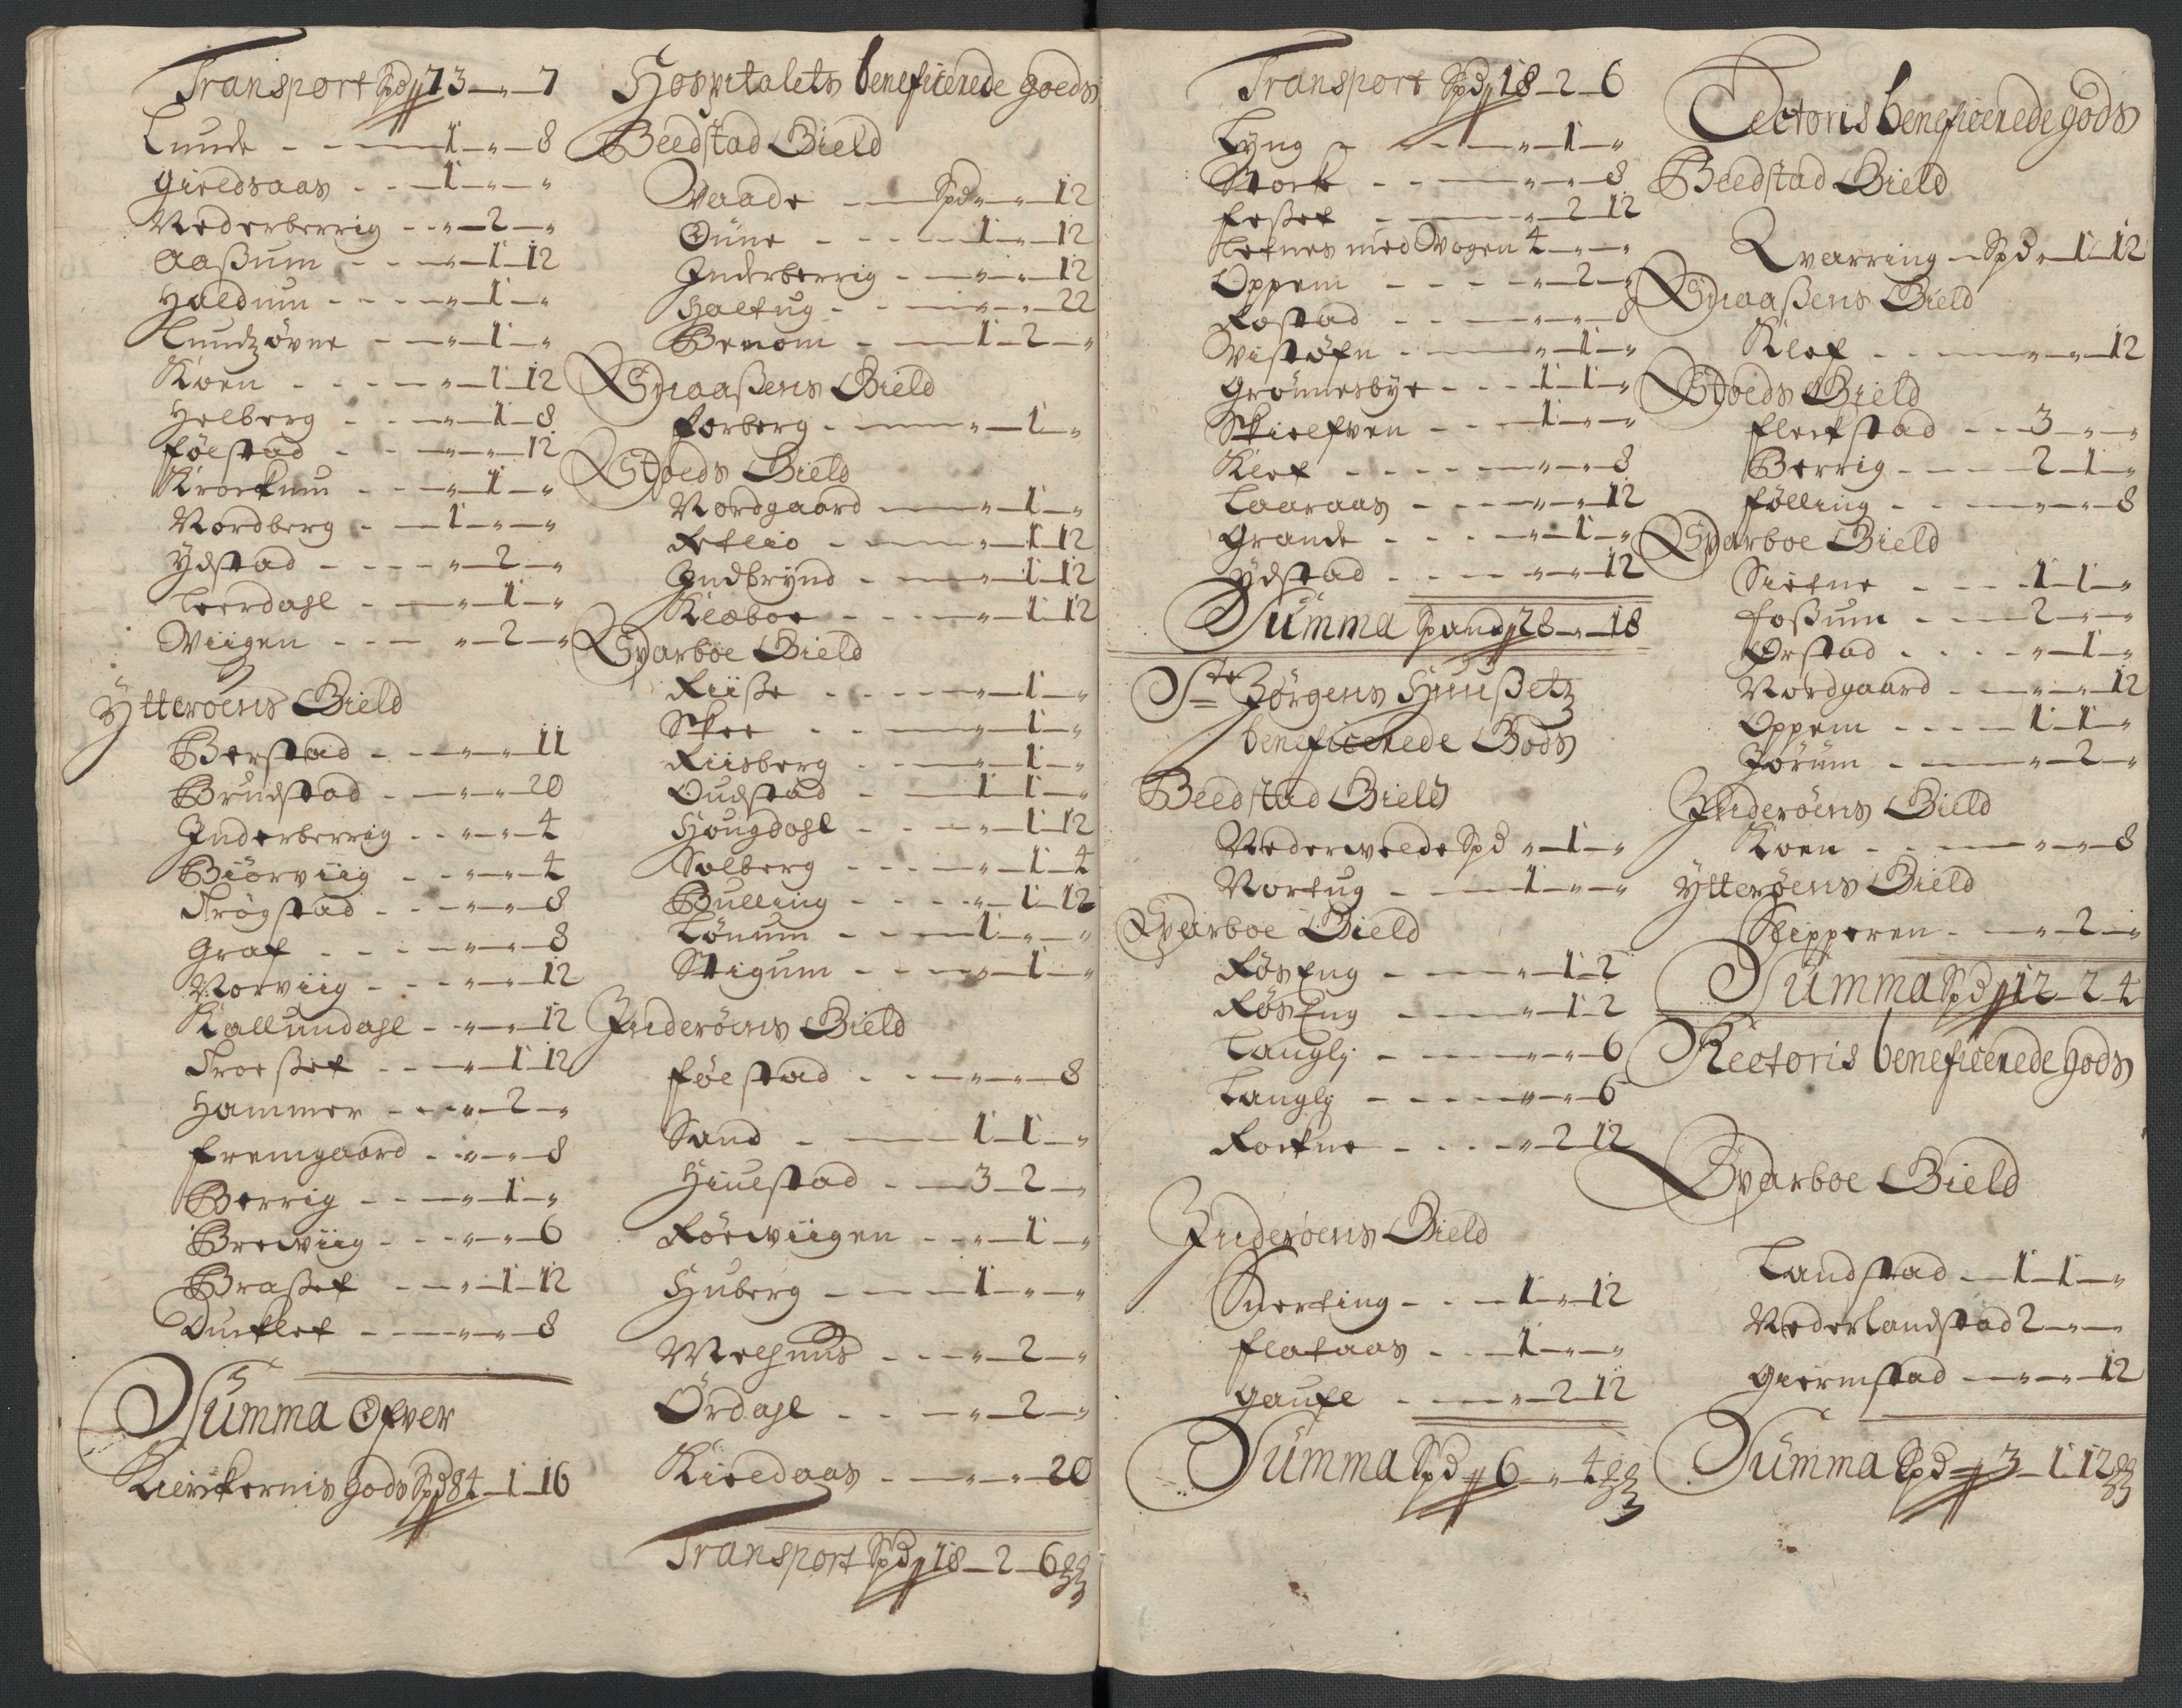 Transport Spd 73 — " — 7
Lunde - - 1 - " - 8
Gieldsaas - - 1 - " - "
Nederberrig - - " - 2 - "
Aaßum - - " - 1 - 12
Haldum - - - " - 1 - "
Lundzövne - - " - 1 - "
Koen - - - " - 1 - 12
Helberg - - " - 1 - 8
Föestad - - " - " - 12
Krockum - - " - 1 - "
Nordberg - 1 - " - "
Ydstad - - - " - 2 - "
Leerdahl - " - 1 - "
Wiigen - - - " - 2 - "
Ytteröens Gield
Berstad - - " - " - 11
Brudstad - - " - " - 20
Inderberrig - - " - " - 4
Biörviig - - " - " - 4
Trögstad - - " - " - 8
Graf - - - " - " - 8
Norviig - - - " - " - 12
Kallundahl - - " - " - 12
Troeßet - - " - 1 - 12
Hammer - - " - 2 - "
Fremgaard - - " - " - 8
Berrig - - " - 1 - "
Brewiig - - - " - " - 6
Braßet - - " - 1 - 12
Dueklet - - " - " - 8
Summa Ofver
Kierkernis gods Spd 84 - 1 - 16
Hospitalets beneficerede goeds
Beedstad Gield
Vaade - Spd " - " - 12
Öune - - - 1 - " - 12
Inderberrig - " - " - 12
Haltug - - " - " - 22
Benom - 1 - 2 - "
Snaaßens Gield
Forberg - " - 1 - "
Stoeds Gield
Nordgaard - " - 1 - "
Retlio - " - 1 - 12
Indbrynd - " - 1 - 12
Kleboe - - - " - 1 - 12
Sparboe Gield
Riiße - - - " - 1 - "
Skee - - " - 1 - "
Riisberg - - " - 1 - "
Oudstad - 1 - 1 - "
Hougdahl - - " - 1 - 12
Solberg - - - " - 1 - 4
Bulling - - - " - 1 - 12
Lönum - - 1 - " - "
Stigum - - " - 1 - "
Inderöens Gield
Föestad - - " - " - 8
Sand - 1 - 1 - "
Hiulstad - - 3 - 2 - "
Röewiigen - - " - 1 - "
Huberg - - - 1 - " - "
Melhuus - - - " - 2 - "
Ördahl - - " - 2 - "
Kieldaas - - " - " - 20
Transport Spd 18 - 2 - 6
Transport Spd 18 - 2 - 6
Lyng - " - 1 - "
Stork - - " - " - 8
Foßet - " - 2 - 12
Letnes med Wogen 4 - " - "
Oppem - - - " - 2 - "
Rostad - - " - " - 8
Wistöfn - " - 1 - "
Grönnesbye - - 1 - 1 - "
Skielfven - - 1 - " - "
Klef - - - - " - " - 8
Laaraas - - " - " - 12
Grande - - - " - 1 - "
Ydstad - - - " - " - 12
Summa Spand 28 - " - 18
Ste Jörgens Huußetz
beneficerede Gods
Beedstad Gield
Nederwolde Spd " - 1 - "
Nortug - 1 - " - "
Sparboe Gield
Röseng - " - 1 - 2
Röseng - " - 1 - 2
Langlj - " - " - 6
Langlj - - " - " - 6
Rockne - - - " - 2 - 12
Inderöens Gield
Snerting - - 1 - " - 12
Flataas - - 1 - " - "
Gaufl - " - 2 - 12
Summa Spd 6 - " - 4
Lectoris beneficerede gods
Beedstad Gield
Qvarring - Spd " - 1 - 12
Snaaßens Gield
Klef - - " - " - 12
Stoeds Gield
Fleckstad - - 3 - " - "
Berrig - - 2 - 1 - "
Fölling - - " - " - 8
Sparboe Gield
Sietne - - 1 - 1 - "
Foßum - - 2 - " - "
Örstad - - - " - 1 - "
Nordgaard - " - " - 12
Oppem - - - 1 - 1 - "
Jörum - " - 2 - "
Inderöens Gield
Koen - - " - " - 8
Ytteröens Gield
Skipperen - " - 2 - "
Summa Spd 12 - 2 - 4
Rectoris beneficerede gods
Sparboe Gield
Landstad - 1 - 1 - "
Nederlandstad 2 - " - "
Giermstad - " - " - 12
Summa Spd 3 - 1 - 12